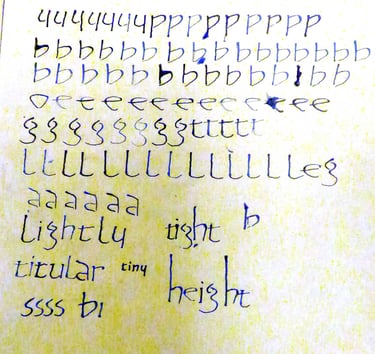 yyyyyyypppppppp
bbbbbbbbbbbbbbbbb
bbbbbbbbbbbbbbb
oeeeeeeeeeeee
ggggggggttttt
LLLLLLLLLLLLLLeg
aaaaaa
Lightly tight b
titular tiny height
ssss bi